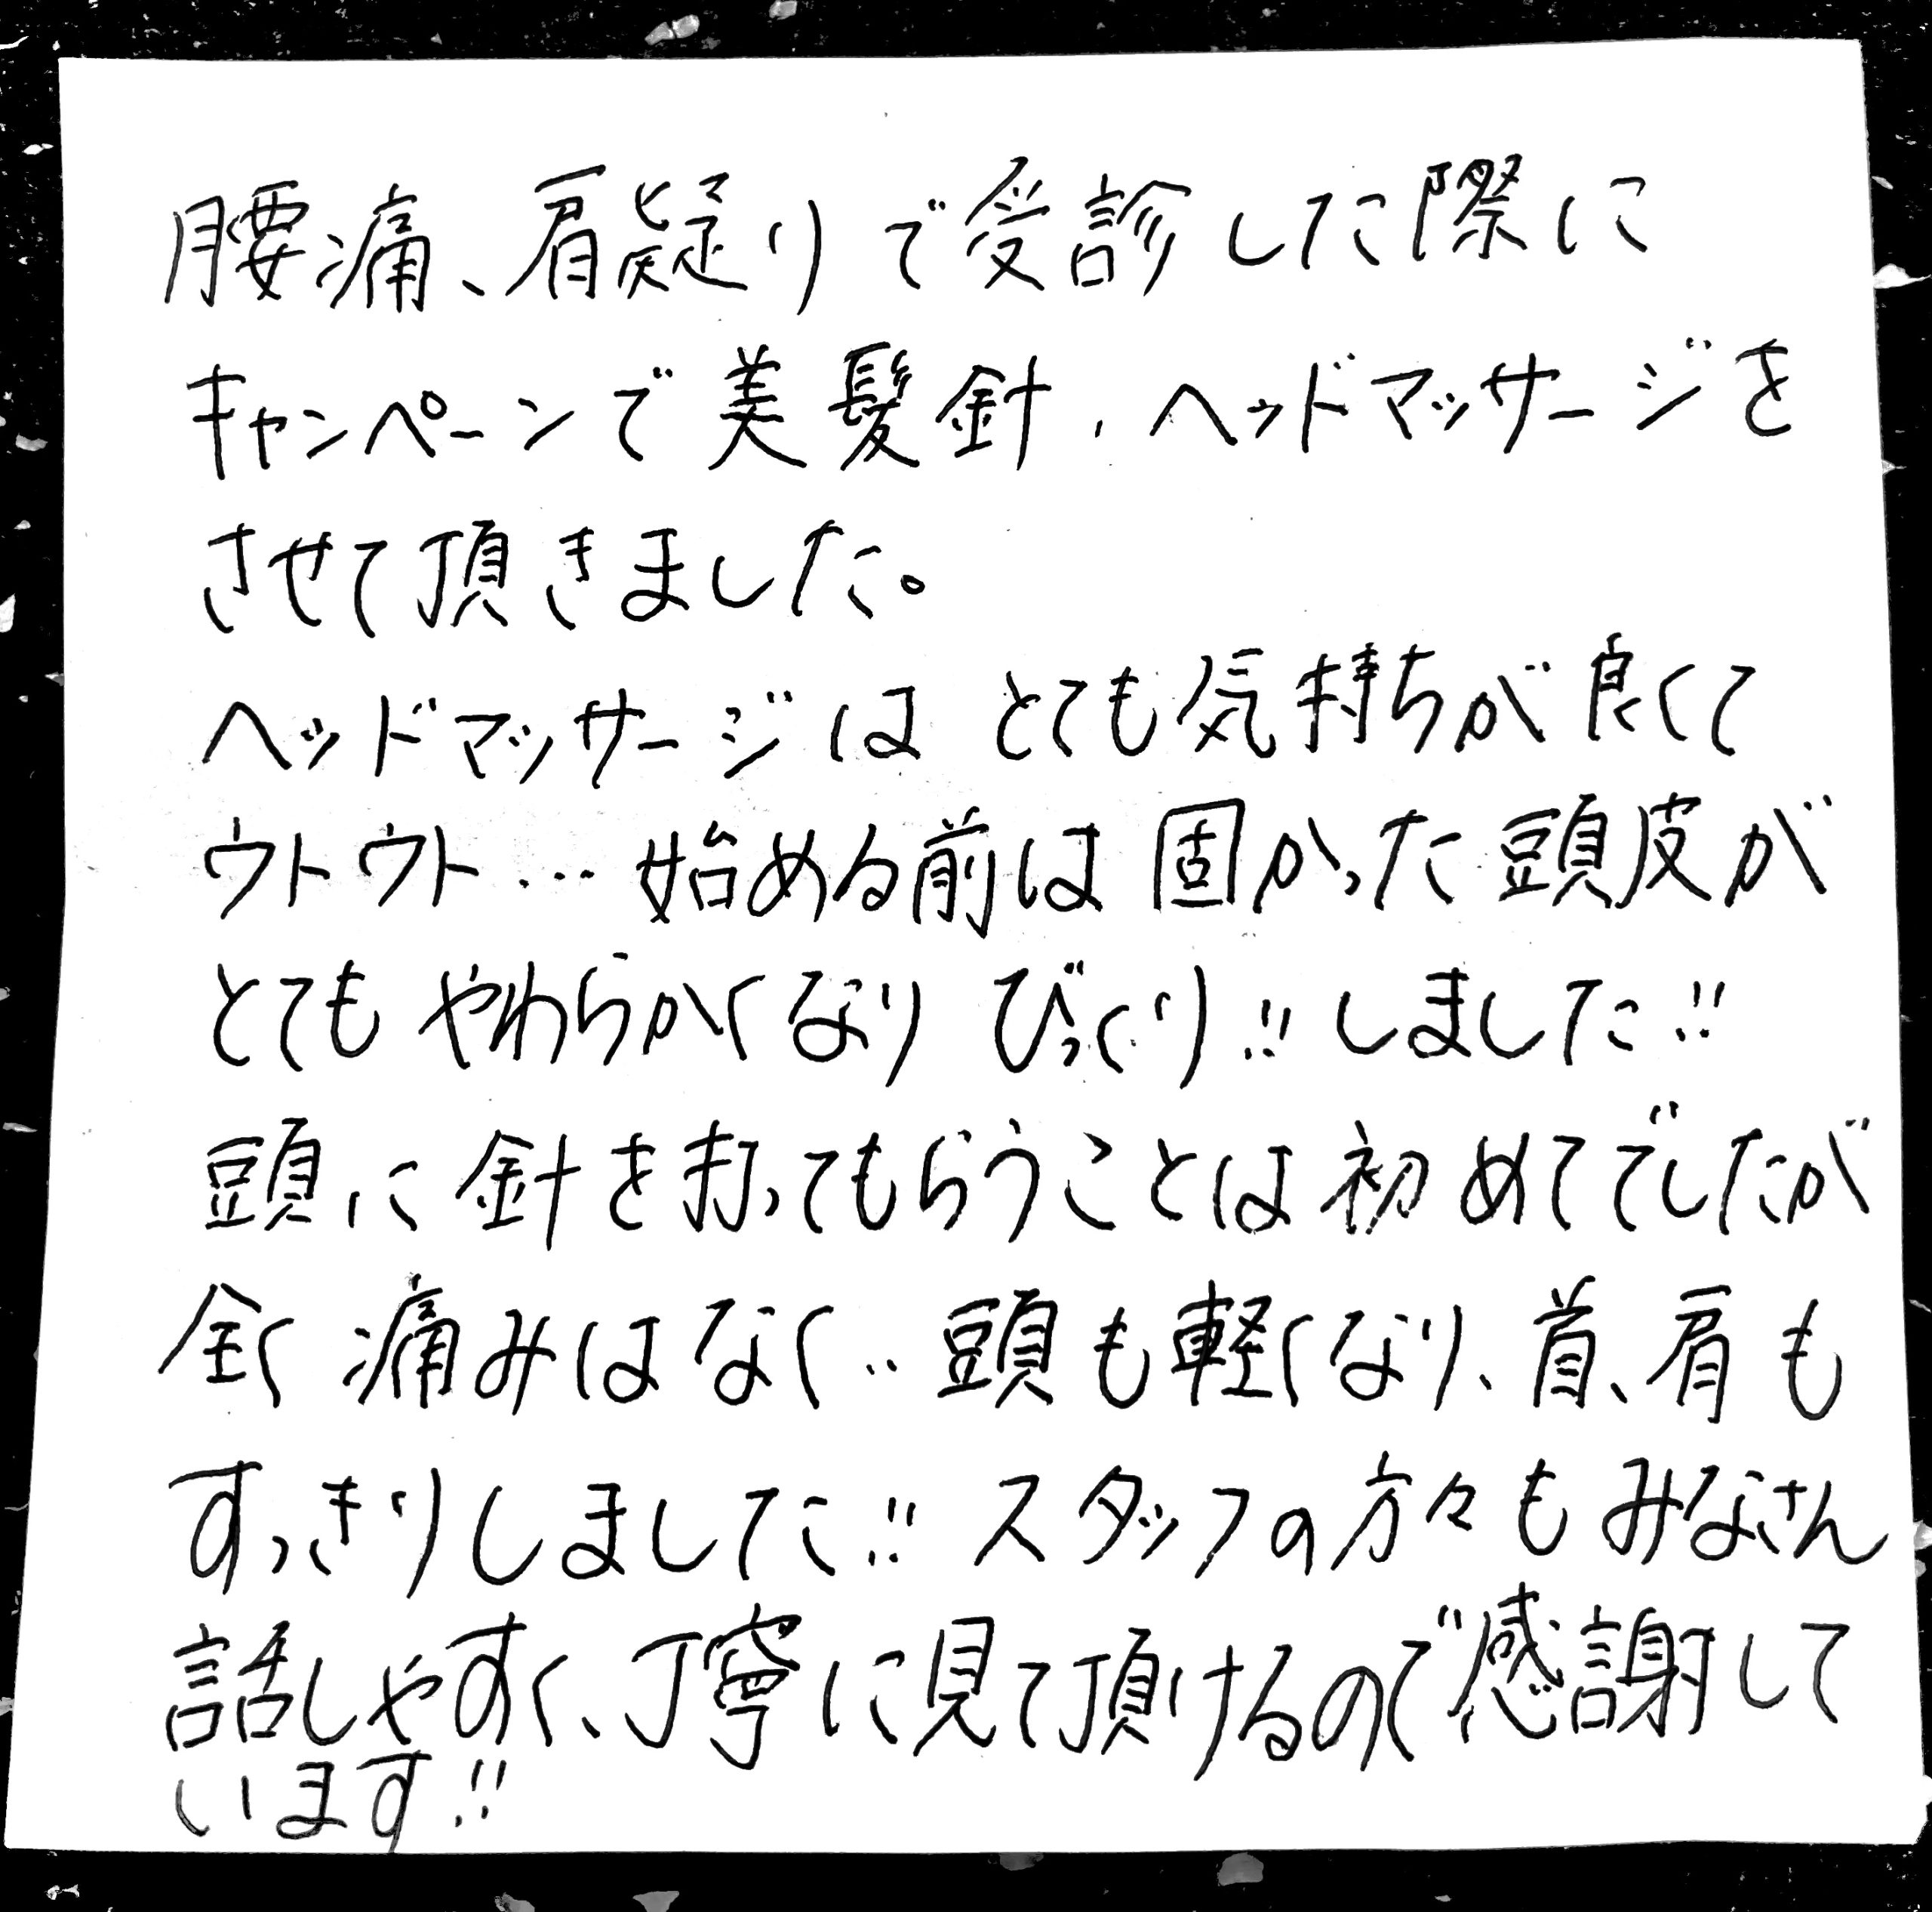 腰痛、肩凝りで受診した際に
キャンペーンで美髪針、ヘッドマッサージを
させて頂きました。
ヘッドマッサージは とても気持ちが良くて
ウトウト… 始める前は固かった頭皮が
とてもやわらかくなり びっくり!!しました!!
頭に針を打ってもらうことは初めてでしたが
全く痛みはなく‥頭も軽くなり、首、肩も
すっきりしました!! スタッフの方々もみなさん
話しやすく、丁寧に見て頂けるので感謝して
います!!